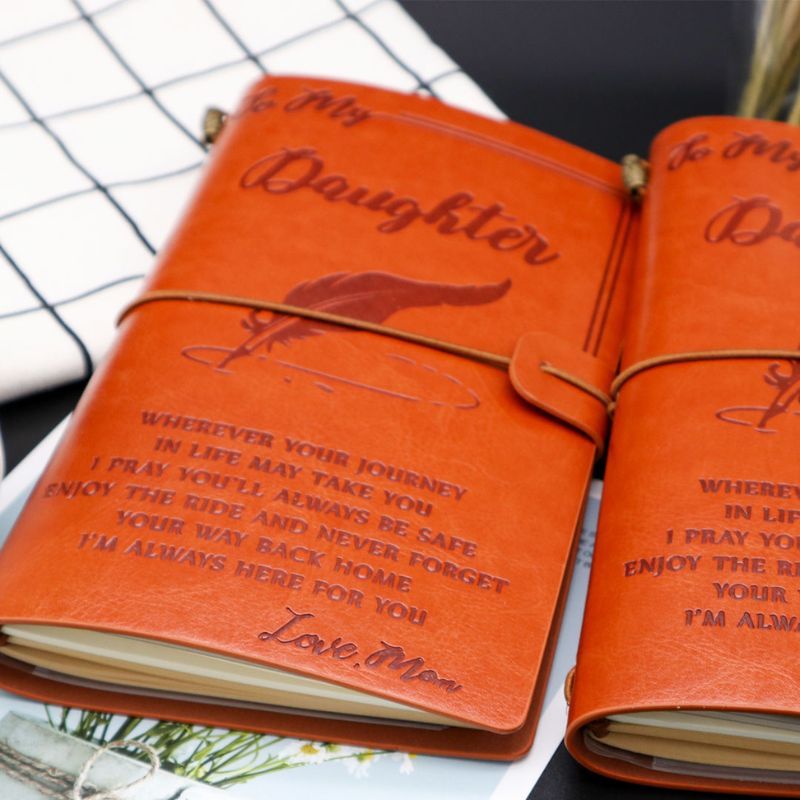 To My
Daughter
WHEREVER YOUR JOURNEY
IN LIFE MAY TAKE YOU
I PRAY YOU'LL ALWAYS BE SAFE
ENJOY THE RIDE AND NEVER FORGET
YOUR WAY BACK HOME
I'M ALWAYS HERE FOR YOU
Love, Mom
To My
Da
WHEREV
IN LIF
I PRAY YO
ENJOY THE RI
YOUR
I'M ALW